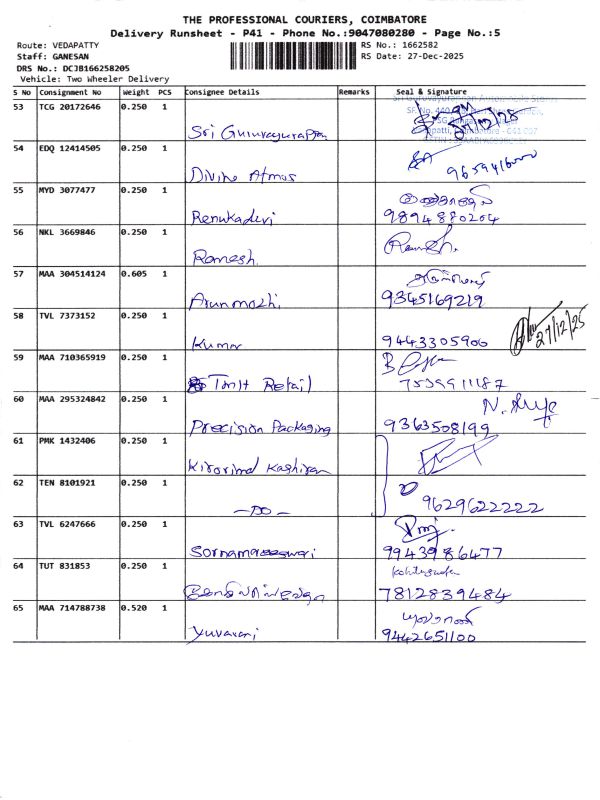 THE PROFESSIONAL COURIERS, COIMBATORE
Delivery Runsheet - P41 - Phone No.:9047080280 - Page No.:5
Route: VEDAPATTY RS No.: 1662582
Staff: GANESAN RS Date: 27-Dec-2025
DRS No.: DCJB166258205
Vehicle: Two Wheeler Delivery
S No Consignment No Weight PCS Consignee Details Remarks Seal & Signature
53 TCG 20172646 0.250 1 27/12/25
Sri Guruvayurappan
54 EDQ 12414505 0.250 1
Divine Atmos
55 MYD 3077477 0.250 1
Renukadevi 9894880204
56 NKL 3669846 0.250 1 Ramesh.
Ramesh
57 MAA 304514124 0.605 1
Arunmozhi 9345169219
58 TVL 7373152 0.250 1 27/12/25
Kumar 9443305900
59 MAA 710365919 0.250 1
Retail 7539911187
60 MAA 295324842 0.250 1
Precision Packaging 9363508199
61 PMK 1432406 0.250 1
62 TEN 8101921 0.250 1
-DO- 9629622222
63 TVL 6247666 0.250 1
9943986477
64 TUT 831853 0.250 1
7812839484
65 MAA 714788738 0.520 1
Yuvarani 9442651100